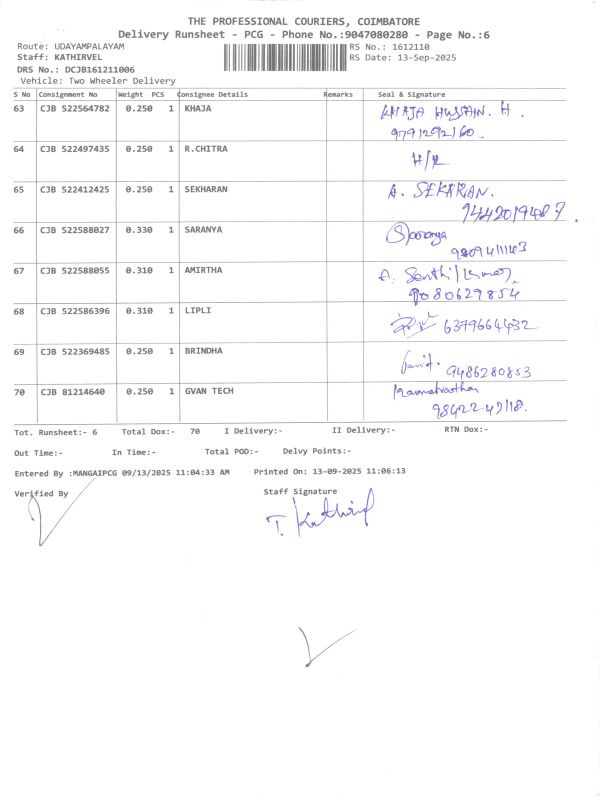 THE PROFESSIONAL COURIERS, COIMBATORE
Delivery Runsheet - PCG - Phone No.:9047080280 - Page No.:6
Route: UDAYAMPALAYAM RS No.: 1612110
Staff: KATHIRVEL RS Date: 13-Sep-2025
DRS No.: DCJB161211006
Vehicle: Two Wheeler Delivery
S No Consignment No Weight PCS Consignee Details Remarks Seal & Signature
63 CJB 522564782 0.250 1 KHAJA KHAJA HUSSAIN. H.
9791292160.
64 CJB 522497435 0.250 1 R.CHITRA H/R
65 CJB 522412425 0.250 1 SEKHARAN A. SEKARAN.
9442019487.
66 CJB 522588027 0.330 1 SARANYA Saranya
67 CJB 522588055 0.310 1 AMIRTHA A. Senthil
9080629854
68 CJB 522586396 0.310 1 LIPLI 6379664432
69 CJB 522369485 0.250 1 BRINDHA
9486280853
70 CJB 81214640 0.250 1 GVAN TECH
Tot. Runsheet:- 6 Total Dox:- 70 I Delivery:- II Delivery:- RTN Dox:-
Out Time:- In Time:- Total POD:- Delvy Points:-
Entered By :MANGAIPCG 09/13/2025 11:04:33 AM Printed On: 13-09-2025 11:06:13
Verified By Staff Signature
T. Kathirvel